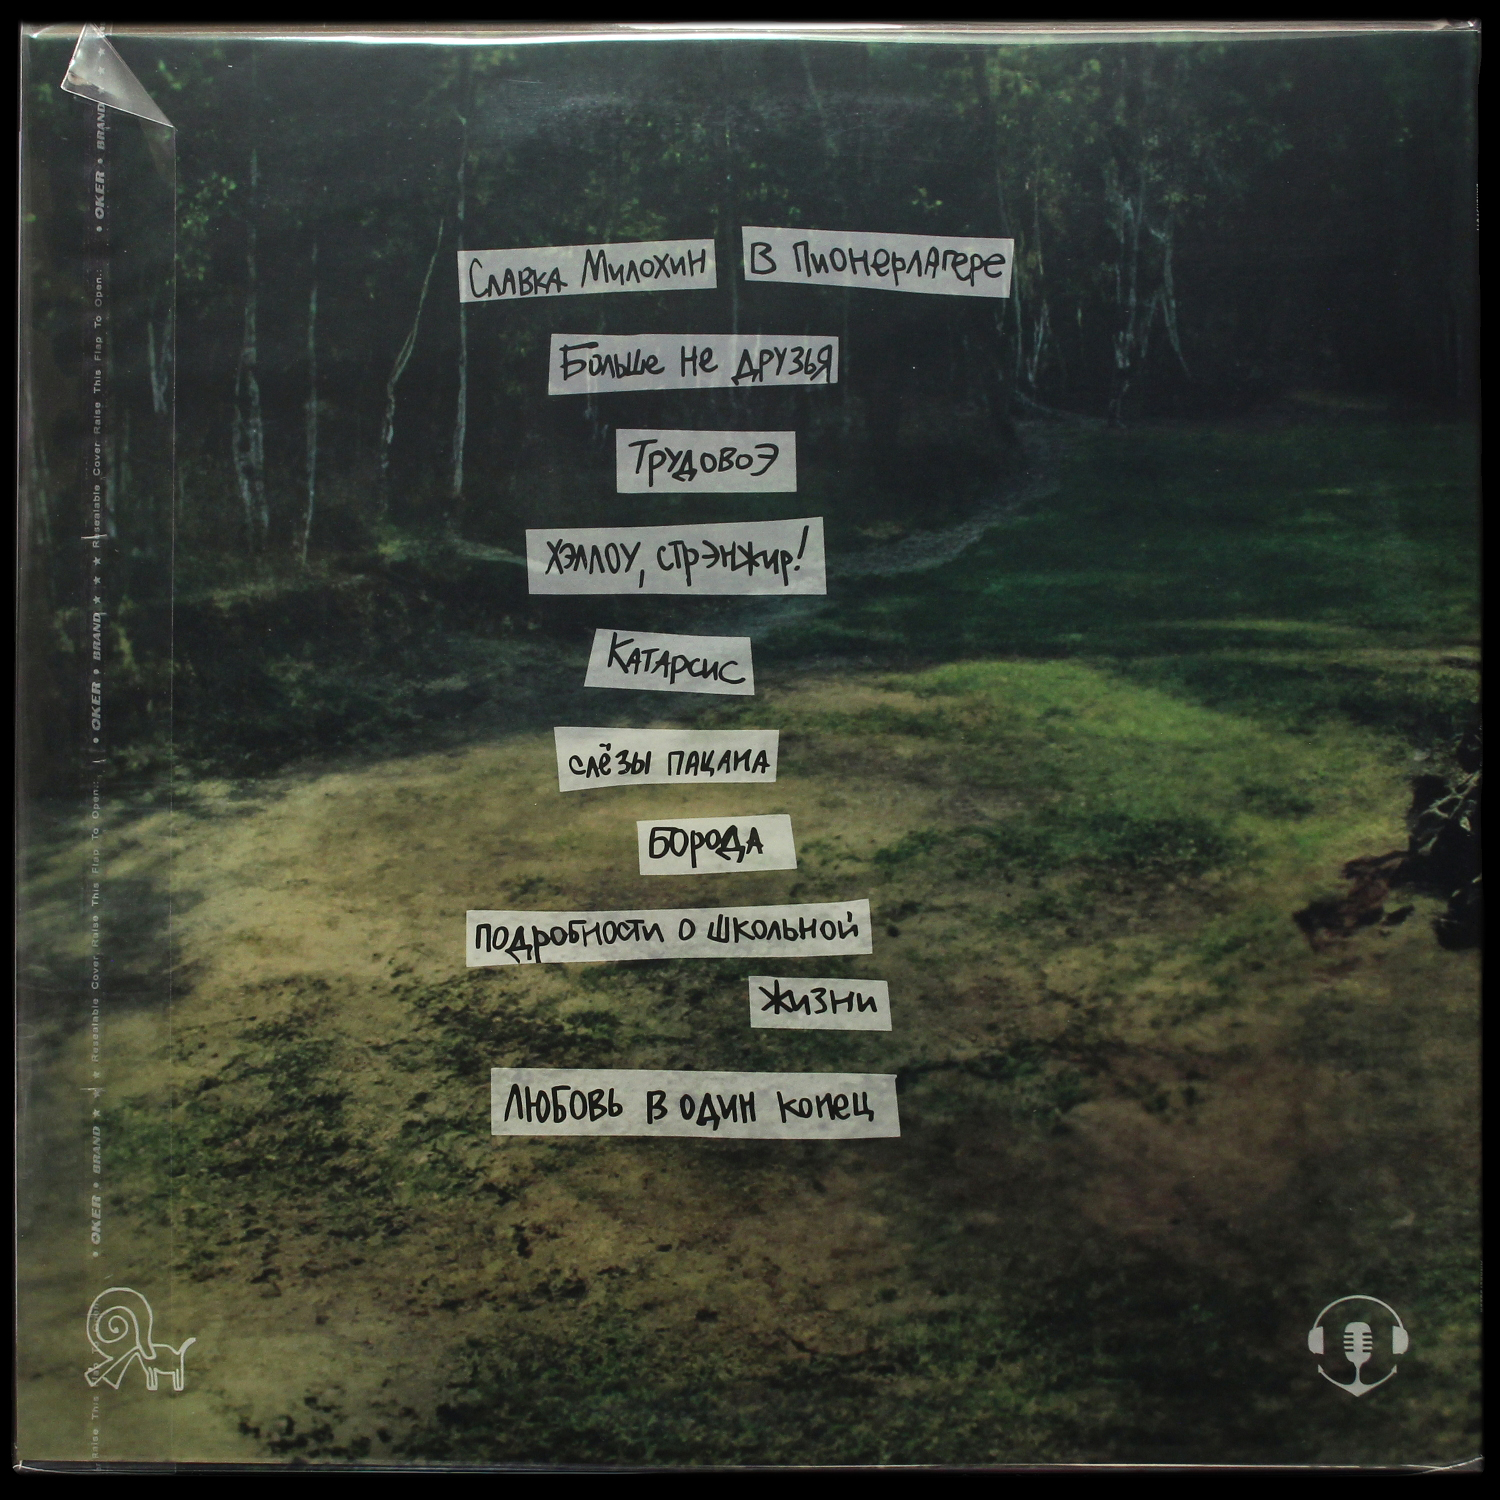 Славка Милохин В Пионерлагере
Больше не друзья
Трудовоэ
Хэллоу, стрэнжир!
Катарсис
слёзы пацана
Борода
подробности о школьной
жизни
Любовь в один конец
• OKER • BRAND ★ ★ Resealable Cover Raise This Flap To Open.: • OKER • BRAND ★ ★ Resealable Cover Raise This Flap To Open.: • OKER • BRAND